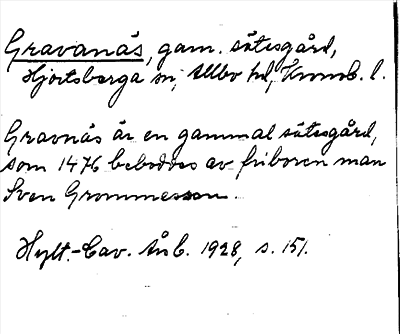 Gravanäs, gam. sätesgård,
Hjortsberga sn, Allbo hd, Kronob. l.
Gravnäs är en gammal sätesgård,
som 1476 beboddes av friboren man
Sven Grommesson.
Hylt.-Cav. Åb. 1928, s. 151.